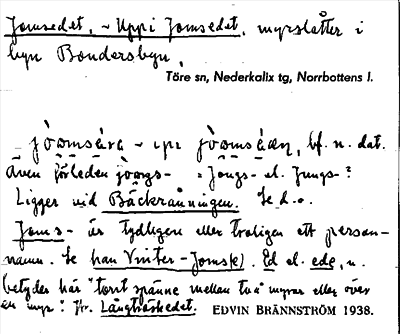 Jomsedet, ~ Uppi Jomsedet, myrslåtter i
byn Bondersbyn,
Töre sn, Nederkalix tg, Norrbottens l.
bf. n. dat.
Även förleden = Jongs- el. Jungs-?
Ligger vid Bäckrånningen. Se d.o.
Joms- är tydligen eller troligen ett person-
namn. Se han Vinter-Joms(e). Ed el. ede, n.
betyder här "torrt spänne mellan två myrar eller över
en myr". Jfr. Långträskedet. EDVIN BRÄNNSTRÖM 1938.